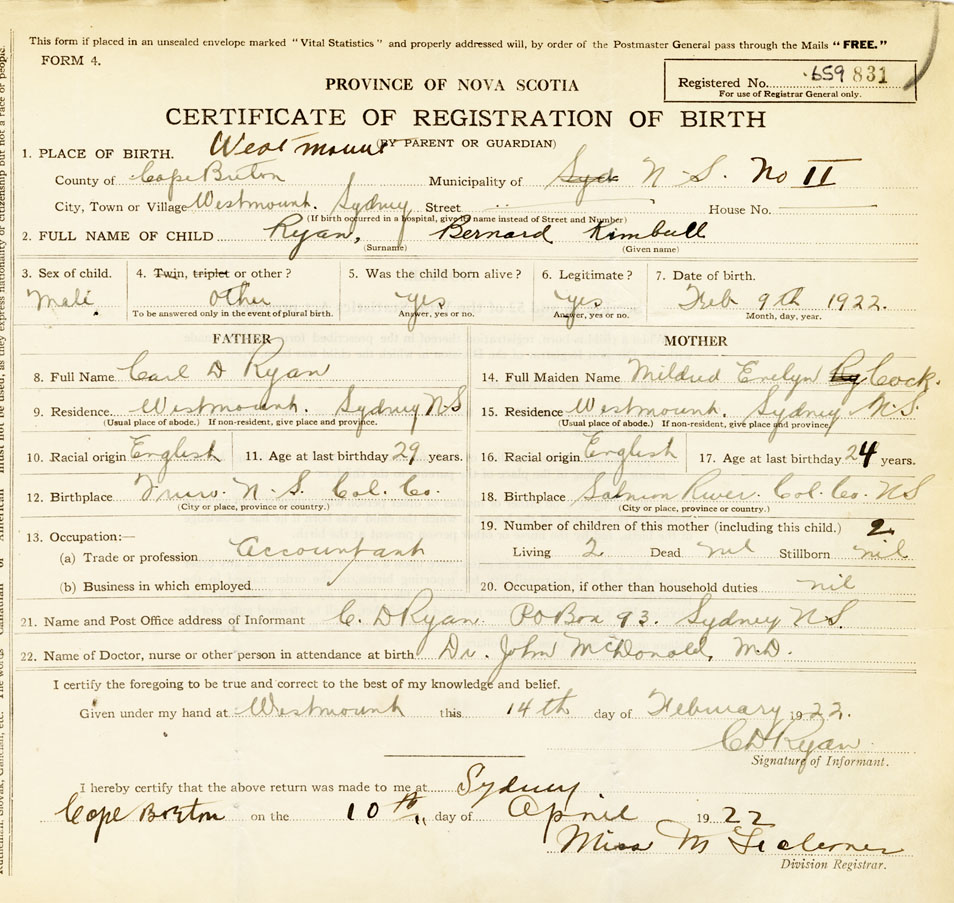 This form if placed in an unsealed envelope marked "Vital Statistics" and properly addressed will, by order of the Postmaster General pass through the Mails "FREE."
FORM 4.
Registered No. 659 831
For use of Registrar General only.
PROVINCE OF NOVA SCOTIA
CERTIFICATE OF REGISTRATION OF BIRTH
(BY PARENT OR GUARDIAN)
1. PLACE OF BIRTH. Westmount
County of Cape Breton Municipality of Syd N S. No II
City, Town or Village Westmount. Sydney Street " House No.
(If birth occurred in a hospital, give its name instead of Street and Number)
2. FULL NAME OF CHILD Ryan, Bernard Kimball
(Surname) (Given name)
3. Sex of child. 4. Twin, triplet or other? 5. Was the child born alive? 6. Legitimate? 7. Date of birth.
Male Other Yes Yes Feb 9th 1922.
To be answered only in the event of plural birth. Answer, yes or no. Answer, yes or no. Month, day, year.
FATHER MOTHER
8. Full Name Carl D Ryan 14. Full Maiden Name Mildred Evelyn Cock.
9. Residence Westmount. Sydney N S 15. Residence Westmount, Sydney N.S.
(Usual place of abode.) If non-resident, give place and province. (Usual place of abode.) If non-resident, give place and province.
10. Racial origin English 11. Age at last birthday 29 years. 16. Racial origin English 17. Age at last birthday 24 years.
12. Birthplace Truro. N. S. Col. Co. 18. Birthplace Salmon River. Col. Co. N S
(City or place, province or country.) (City or place, province or country.)
13. Occupation:— 19. Number of children of this mother (including this child.) 2
(a) Trade or profession Accountant Living 2 Dead nil Stillborn nil
(b) Business in which employed 20. Occupation, if other than household duties nil
21. Name and Post Office address of Informant C. D Ryan. PO Box 93. Sydney N S.
22. Name of Doctor, nurse or other person in attendance at birth. Dr. John McDonald, M.D.
I certify the foregoing to be true and correct to the best of my knowledge and belief.
Given under my hand at Westmount this 14th day of February 1922.
C D Ryan.
Signature of Informant.
I hereby certify that the above return was made to me at Sydney
Cape Breton on the 10th day of April 1922
Miss M
Division Registrar.